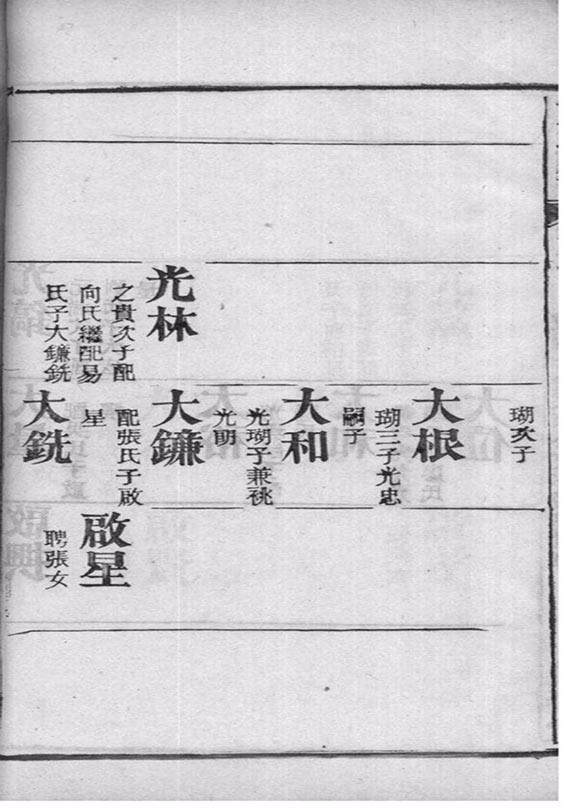 光林
之貴次子配
向氏繼配易
氏子大鐮銑
瑚次子
大根
瑚三子光忠
嗣子
大和
光瑚子兼祧
光明
大鐮
配張氏子啟
星
大銑
啟星
聘張女